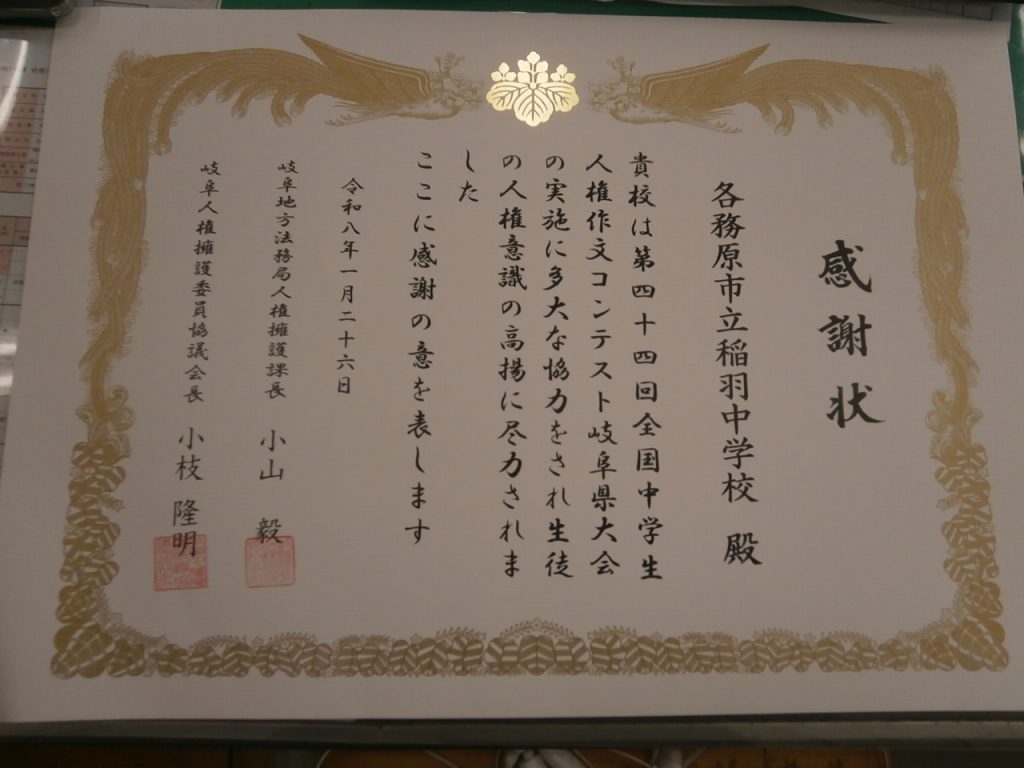 感謝状
各務原市立稲羽中学校 殿
貴校は第四十四回全国中学生
人権作文コンテスト岐阜県大会
の実施に多大な協力をされ生徒
の人権意識の高揚に尽力されま
した
ここに感謝の意を表します
令和八年一月二十六日
岐阜地方法務局人権擁護課長 小山 毅
岐阜人権擁護委員協議会長 小枝 隆明